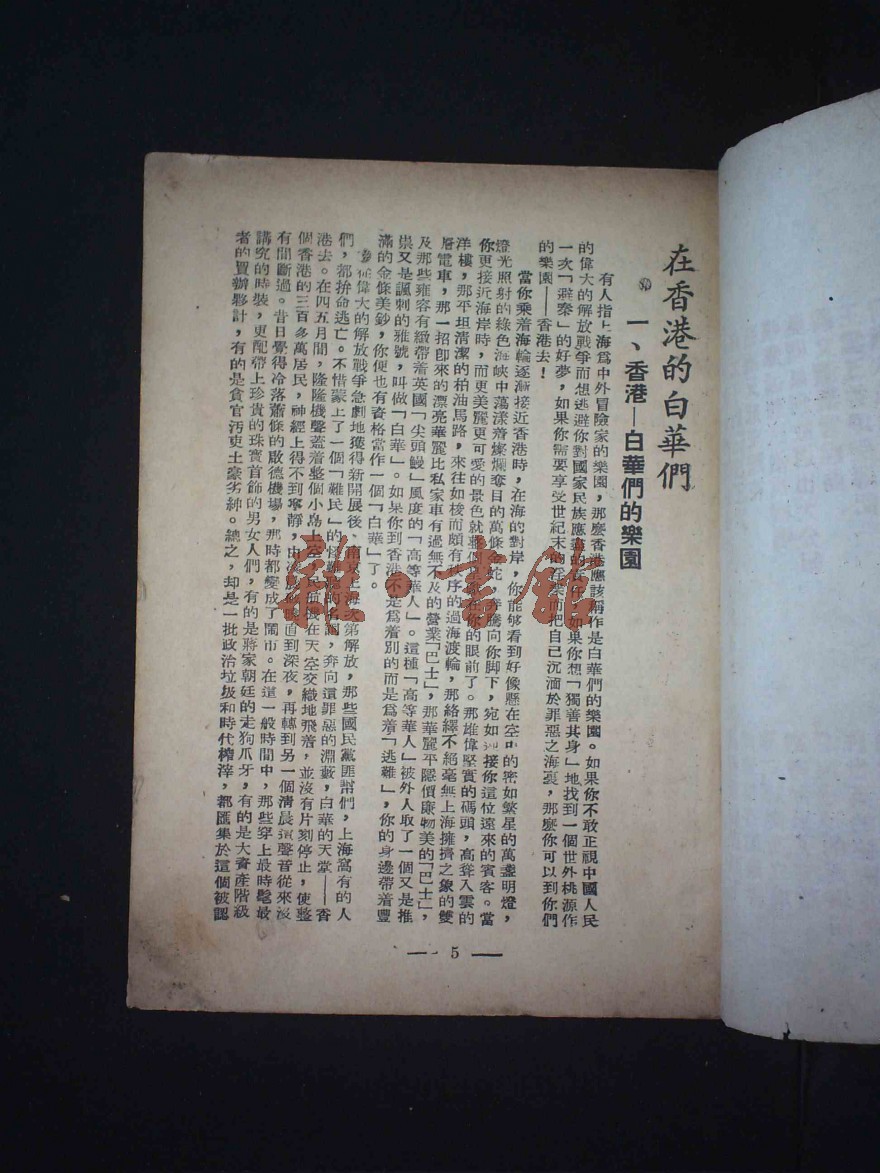 在香港的白華們
一、香港—白華們的樂園
有人指上海爲中外冒險家的樂園，那麽香港應該稱作是白華們的樂園。如果你不敢正視中國人民
的偉大的解放戰爭而想逃避你對國家民族應盡的責任，如果你想「獨善其身」地找到一個世外桃源作
一次「避秦」的好夢，如果你需要享受世紀末的 而把自己沉湎於罪惡之海裏，那麽你可以到你們
的樂園——香港去！
當你乘着海輪逐漸接近香港時，在海的對岸，你能够看到好像懸在空中的密如繁星的萬盞明燈，
燈光照射的綠色海峽中蕩漾着燦爛奪目的萬條 蛇， 騰向你脚下，宛如迎接你這位遠來的賓客。當
你更接近海岸時，而更美麗更可愛的景色就 在你的眼前了。那雄偉堅實的碼頭，高聳入雲的
洋樓，那平坦清潔的柏油馬路，來往如梭而頗有秩序的過海渡輪，那絡繹不絕毫無上海擁擠之象的雙
層電車，那一招即來的漂亮華麗比私家車有過無不及的營業「巴士」，那華麗平穩價廉物美的「巴士」，
及那些雍容有緻帶着英國「尖頭鰻」風度的「高等華人」。這種「高等華人」被外人取了一個又是推
崇又是諷刺的雅號，叫做「白華」。如果你到香港不是爲着別的而是爲着「逃難」，你的身邊帶着豐
滿的金條美鈔，你便也有資格當作一個「白華」了。
偉大的解放戰爭急劇地獲得新開展後、南京上海次第解放，那些國民黨匪幫們，上海窩有的人
們，都拚命逃亡。不惜蒙上了一個「難民」的怪難聽的名詞，奔向這罪惡的淵藪，白華的天堂——香
港去。在四五月間，隆隆機聲蓋着整個小島上空，民航機在天空交織地飛着，並沒有片刻停止，使整
個香港的三百多萬居民，神經上得不到寧靜，由 直到深夜，再轉到另一個清晨這聲音從來沒
有間斷過。昔日覺得冷落蕭條的啟德機場，那時都變成了鬧市。在這一般時間中，那些穿上最時髦最
講究的時裝，更配帶上珍貴的珠寶首飾的男女人們，有的是蔣家朝廷的走狗爪牙，有的是大資產階級
者的買辦夥計，有的是貪官汚吏土豪劣紳。總之，却是一批政治垃圾和時代榨滓，都匯集於這個被認
— 5 —
雜·書館